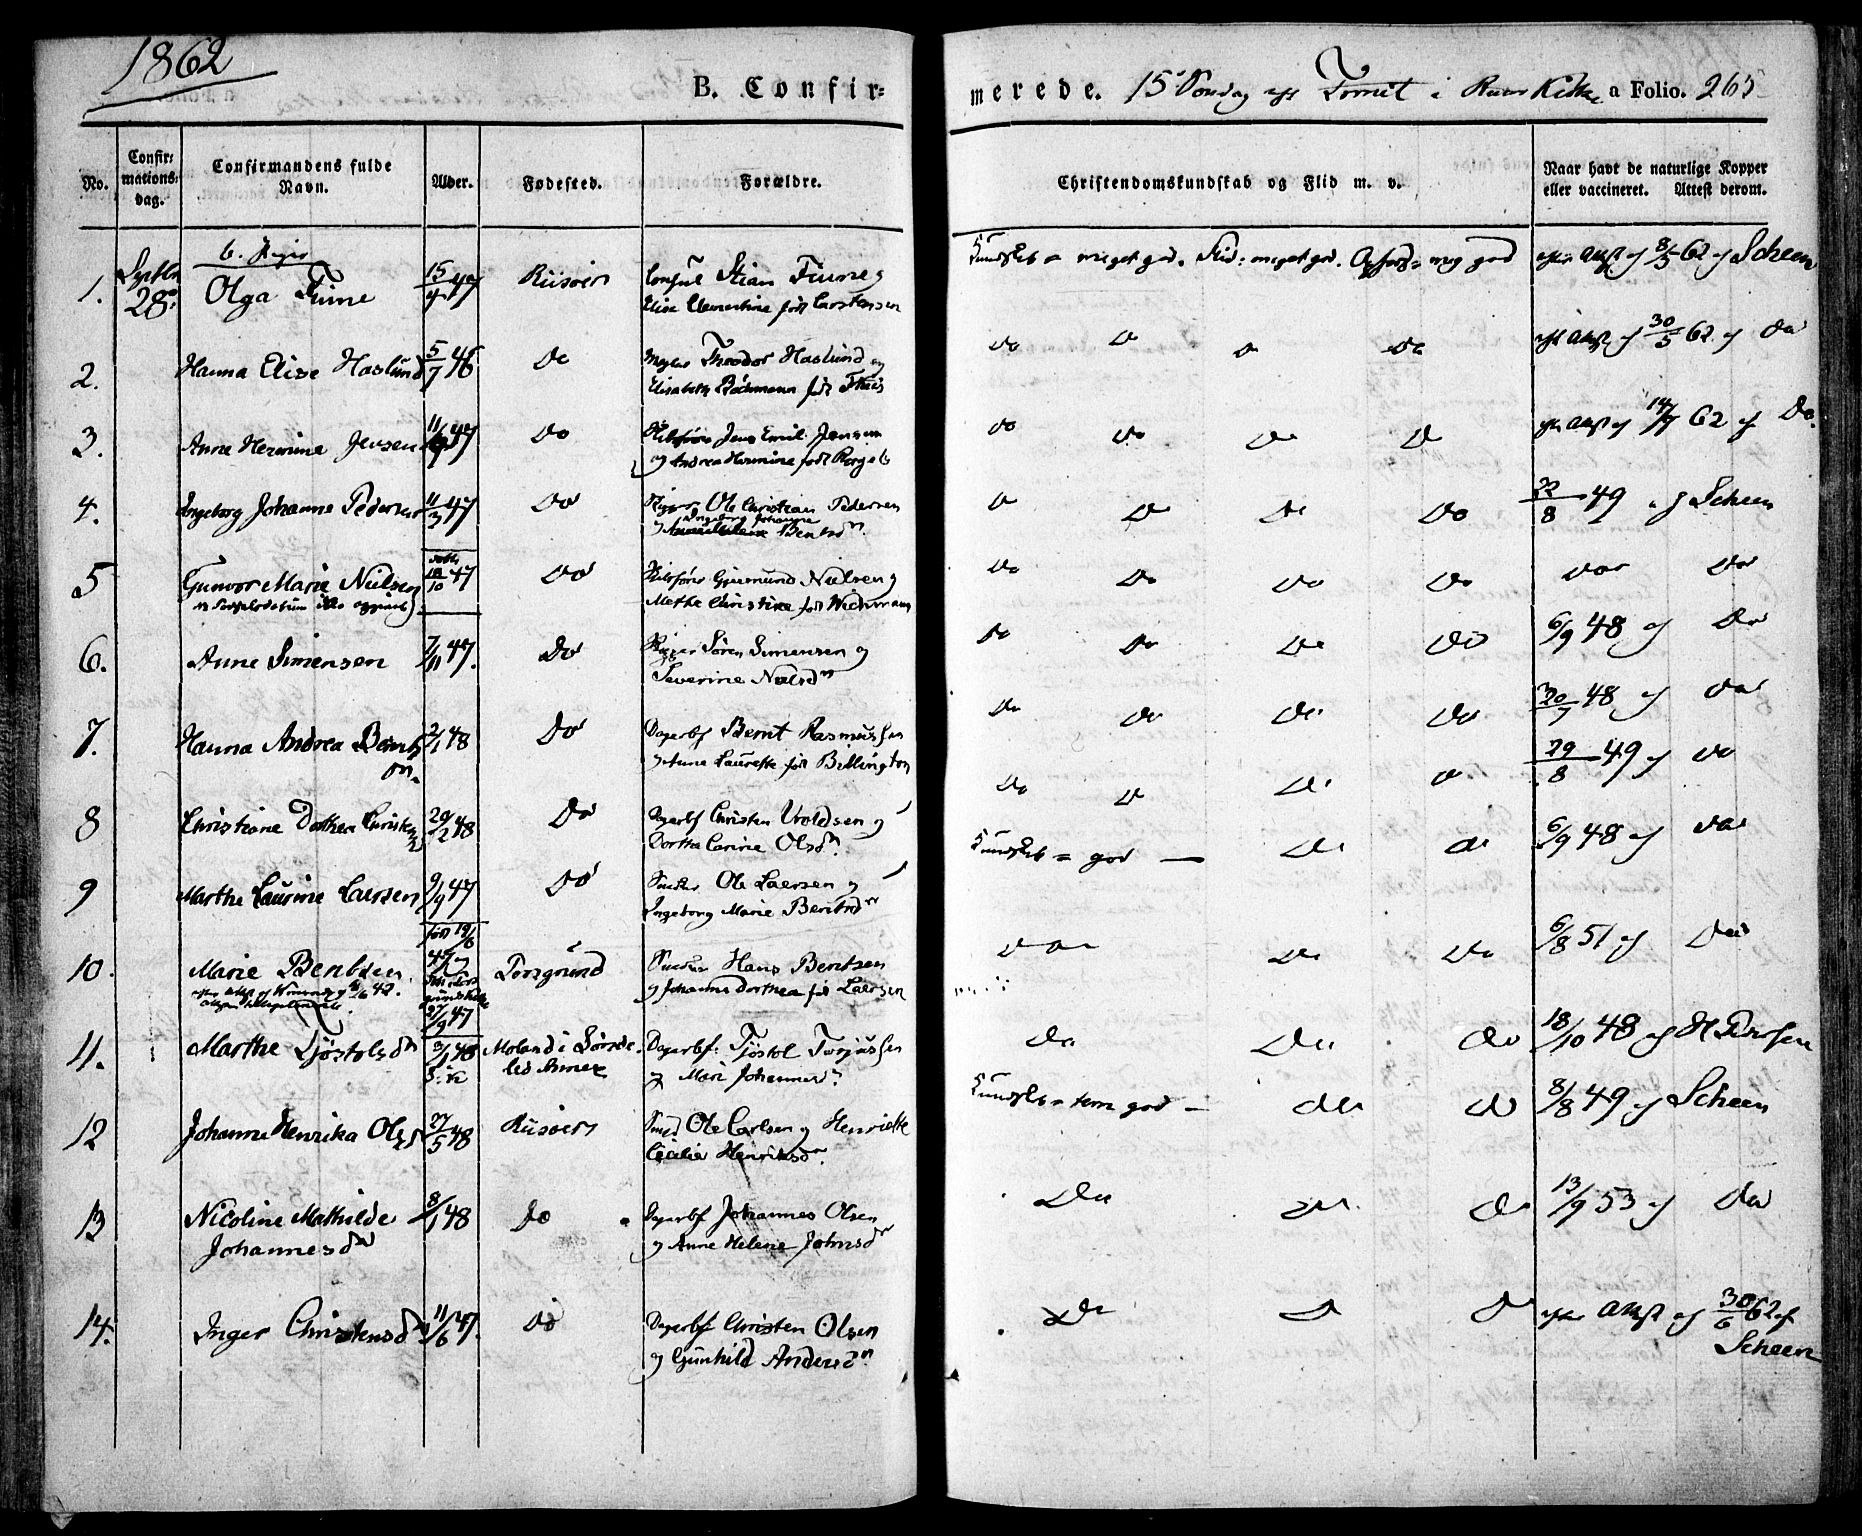 1862
B. Confir-
merede. 15 Søndag eft Trinit i Kirke a Folio. 265
No.
Confir-
mations-
dag.
Confirmandens fulde
Navn.
Alder.
Fødested.
Forældre.
Christendomskundskab og Flid m. v.
Naar havt de naturlige Kopper
eller vaccineret. Attest derom.
b. Piger
1. Septbr
28 Olga Finne 15/4 47 Riisøer Consul Stian Finne og
Elise Clementine født Carstensen
Kundskab = meget god. Flid = meget god. Opførs = meg god
efter Attst af 8/5 62 af Scheen
2. Hanna Elise Haslund 5/7 46 do Theodor Haslund og
Elisabeth født
do do do do
eft Attst af 30/5 62 af do
3. Anne Hermine Jensen 47 do Jens Emil Jensen
og Andrea Hermine født
do do do do
eftr Attst af 14/7 62 af Do.
4. Ingeborg Johanne Pedersen 11/3 47 do Rigger Ole Christian Pedersen
Ingeborg Johanne
og Bentsdn.
do do do do
22/8 49 af Scheen
5 Gunvor Marie Nielsen 18/10 47 do Gjermund Nielsen og
Methe Christine født Wichmann
do do do do
do do
6. Anne Simensen 7/11 47. do Rigger Søren Simensen og
Severine Nielsdn
do do do do
6/9 48 af do
7. Hanna Andrea Bernts 2/1 48 do Dagarbf Bernt Rasmussen
dn.
og Anne Laurette født Billington
do do do do
30/7 48 af do
29/8 49 af do
8 Christiane Dorthea Christens 29/2 48 do Dagarbf Christen Uvoldsen og
Dorthe Carine Olsdn.
do do do do
6/9 48 af do
9 Marthe Laurine Laersen 9/9 47 do Snedker Ole Laersen og
Ingeborg Marie Berntsdn
Kundskab = god — do do
10. Marie Bentsen født 19/6
47 og Porsgrund Snedker Hans Bentsen
og Johanne Dorthea fød Laersen
do do do
6/8 51 af do
11. Marthe Tjøstolsdn 3/1 48 Moland i Søndeled Annex Dagarbf. Tjøstol Torjussen
og Mari Johannesdn.
do do do
18/10 48 af H
12 Johanne Henrika Olsd 27/5 48 Riisøer Smed Ole Carlsen og Henriette
Cecilie Henriksdn.
Kundskab = tem god — do do
8/8 49 af Scheen
13 Nicoline Mathilde 8/1 48 do Dagarbf Johannes Olsen
Johannesdn
og Anne Helene Johnsdn
do do do
13/9 53 af do
14. Inger Christensdn 11/6 47. do Dagarbf Christen Olsen
og Gunhild Andersdn
do do do
efter Attst af 30/6 62 af
Scheen